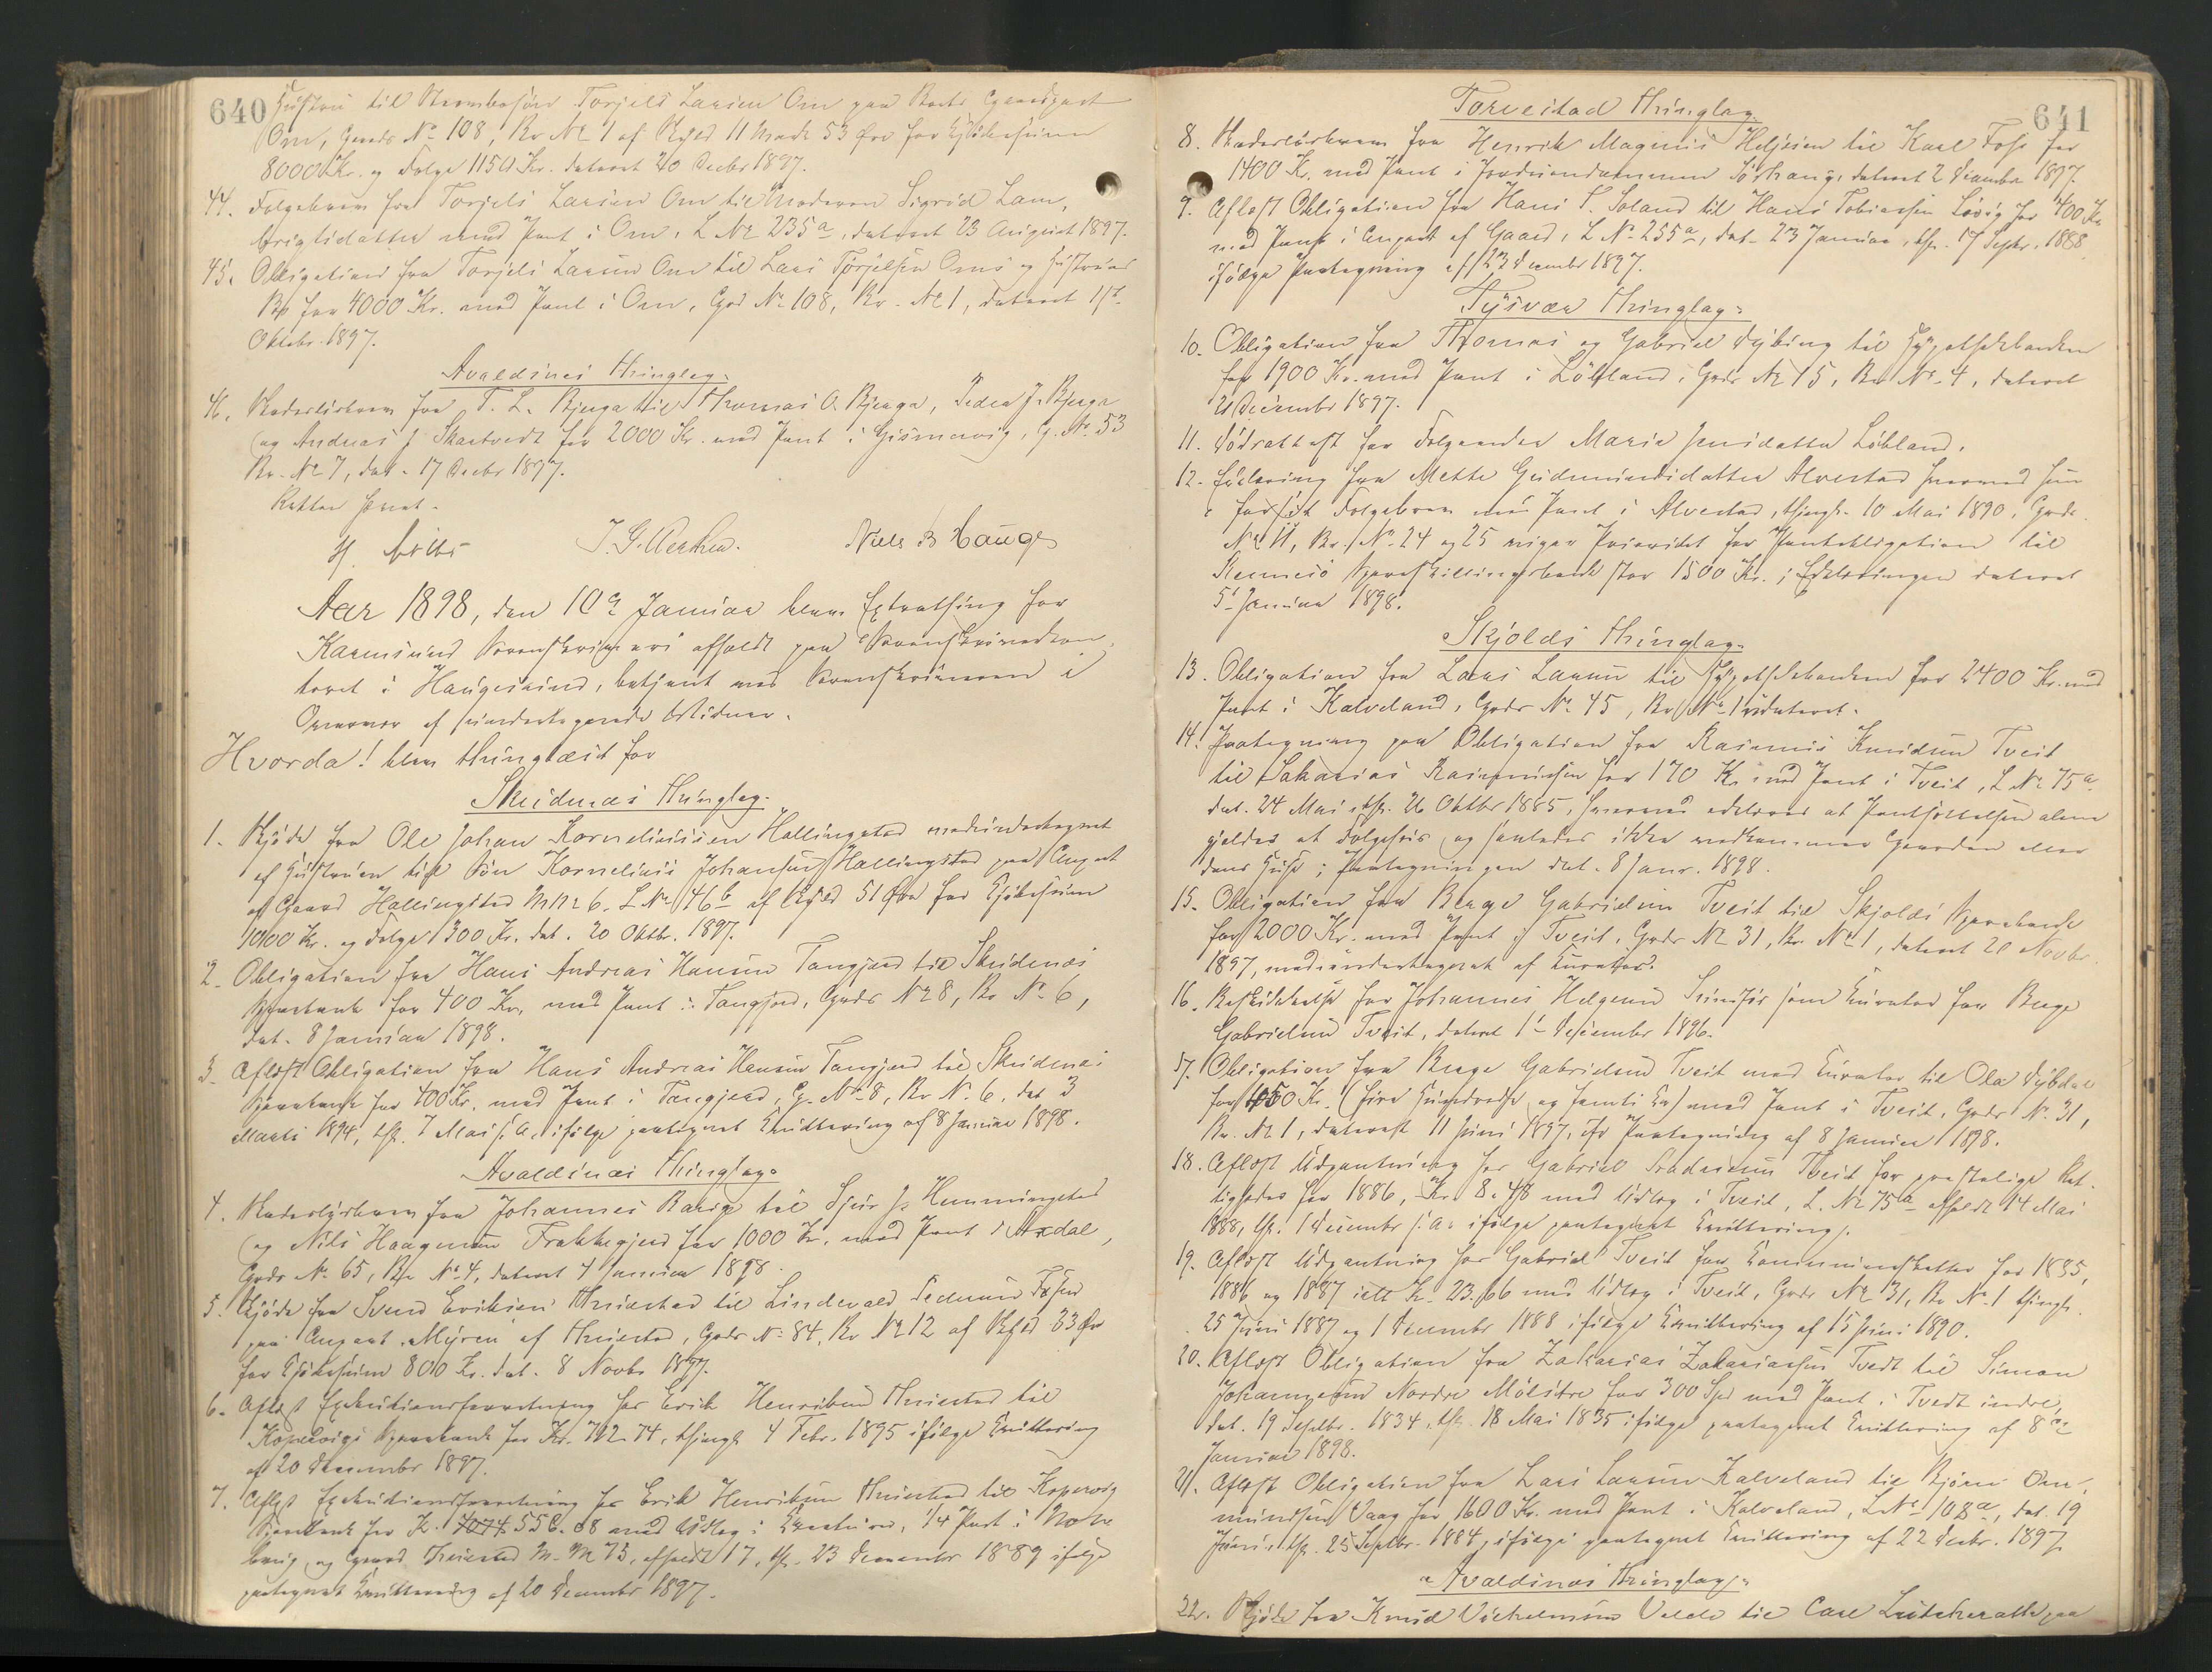 640
Hustru til Torjels Larsen Om paa Gaardpart
Om, Gaards No 108, Br No 1 af Skyld 11 Mark 53 Øre for Kjøbesum
8000 Kr. og Folge 1150 Kr. dateret 20 Decbr 1897.
44. Folgebrev fra Torjels Larsen Om til Moderen Sigrid Lars,
datter med Pant i Om, L No 235a, dateret 23 August 1897.
45. Obligation fra Torjels Larsen Om til Lars Torjelsen Oms og Hustrues
Bo for 4000 Kr. med Pant i Om, Grds No 108, Br. No 1, dateret
Oktobr. 1897.
Avaldsnes Thinglag.
46. Skadesløsbrev fra T. L. Bjerga til Thomas O. Bjerga, Peder J. Bjerga
og Andreas J. Skartvedt for 2000 Kr. med Pant i Gismervig, G. No. 53
Br. No 7, dat. 17 Decbr 1897.
Retten hævet.
Niels B Hauge
Aar 1898, den 10de Januar blev Extrathing for
Karmsund Sorenskriveri afholdt paa Sorenskriverkon-
toret i Haugesund, betjent med Sorenskriveren i
Overvær af undertegnede Vidner.
Hvorda! blev thinglæst for
Skudenæs Thinglag.
1. Skjøde fra Ole Johan Korneliussen Hallingstad medundertegnet
af Hustruen til Søn Kornelius Johansen Hallingstad paa Anpart
af Gaard Hallingstad M No 6, L No 46b af Skyld 51 Øre for Kjøbesum
1000 Kr. og Folge 300 Kr. dat. 20 Oktbr. 1897.
2. Obligation fra Hans Andreas Hansen Tangjerd til Skudenæs
Sparebank for 400 Kr, med Pant i Tangjerd, Grds No 8, Br No 6,
dat. 8 Januar 1898.
3. Aflæst Obligation fra Hans Andreas Hansen Tangjerd til Skudenæs
Sparebank for 400 Kr. med Pant i Tangjerd, G. No 8, Br No. 6, dat 3
Marts 1894, thl. 7 Mai s. A. ifølge paategnet Kvittering af 8 Januar 1898.
Avaldsnæs Thinglag.
4. Skadesløsbrev fra Johannes til Sjur J. Hemmingstad
og Nils Haagensen Frakkagjerd for 1000 Kr. med Pant i Axdal,
Grds No. 65, Br No 4, dateret 7 Januar 1898.
5. Skjøde fra Svend Eriksen Thuestad til Lindevald Pedersen
paa Anpart "Myren" af Thuestad, Grds No. 84, Br No 12 af Skyld 33 Øre
for Kjøbesum 800 Kr. dat. 8 Novbr 1897.
6. Aflæst Exekutionsforretning hos Erik Henriksen Thuestad til
Kopervigs Sparebank for Kr. 712.74, thingl. 4 Febr. 1895 ifølge Kvittering
af 20 December 1897.
7. Aflæst Exekutionsforretning hos Erik Henriksen Thuestad til Kopervig
Sparebank for Kr. 556.08 med Udlæg i 1/4 Part i
og Gaard Thuestad M. No 73, afholdt 17, thl. 23 December 1889 ifølge
paategnet Kvittering af 20 December 1897.
641
Torvestad Thinglag.
8. Skadesløsbrev fra Henrik Magnus Heljesen til Karl Foss for
1400 Kr. med Pant i Jordeiendommen Sørhaug, dateret 2 December 1897.
9. Aflæst Obligation fra Hans T. Søland til Hans Tobiassen for 400 Kr
med Pant i Anpart af Gaard, L No 255a, dat. 23 Januar, thl. 17 Septr. 1888
ifølge Paategning af 23 December 1897.
Tysvær Thinglag.
10. Obligation fra Thomas og Gabriel til Hypothekbanken
for 1900 Kr. med Pant i Løbland, Grds No 15, Br No. 4, dateret
21 December 1897.
11. Dødsattest for Marie Løbland.
12. Erklæring fra Mette Gudmundsdatter Alvestad hvorved hun
for sit Folgebrev med Pant i Alvestad, thingl. 10 Mai 1890, Grds
No 11, Br. No 24 og 25 viger Prioritet for Pantobligation til
Sparebank stor 1500 Kr.; Erklæringen dateret
5 Januar 1898.
Skjolds Thinglag.
13. Obligation fra Lars Larsen til Hypothekbanken for 2400 Kr. med
Pant i Kalveland, Grds No 45, Br No 1, udateret.
14. Paategning paa Obligation fra Rasmus Knudsen Tveit
til Sakarias Rasmussen for 170 Kr. med Pant i Tveit, L No 75a
dat. 24 Mai, thl. 26 Oktbr 1885, hvorved erklæres at Pantsættelsen alene
gjelder og saaledes ikke vedkommer Gaarden eller
dens Huse; Paategningen dat. 8 Janr. 1898.
15. Obligation fra Berge Gabrielsen Tveit til Skjolds Sparebank
for 2000 Kr. med Pant i Tveit, Grds No 31, Br No 1, dateret 20 Novbr.
1897, medundertegnet af Kurator.
16. Beskikkelse for Johannes Helgesen som Kurator for Berge
Gabrielsen Tveit, dateret 1 December 1896.
17. Obligation fra Berge Gabrielsen Tveit med Kurator til Ola Dybdal
for 450 Kr. (fire Hundrede og femti Kr) med Pant i Tveit, Grds No. 31,
Br. No 1, dateret 11 Juni 1897, Paategning af 8 Januar 1898.
18. Aflæst Udpantning hos Gabriel Tveit for
for 1886, Kr. 8.48 med Udlæg i Tveit, L. No 75a afholdt 14 Mai
1888, thl. 1 December s. A. ifølge paategnet Kvittering.
19. Aflæst Udpantning hos Gabriel Tveit for Kommuneskatter for 1885,
1886 og 1887 ialt Kr. 23.66 med Udlæg i Tveit, Grds No 31, Br No. 1 thingl.
25 Juni 1887 og 1 December 1888 ifølge Kvittering af 15 Juni 1890.
20. Aflæst Obligation fra Zakarias Zakariassen Tvedt til Simon
Johannesen Nordre Mølstre for 300 Spd med Pant i Tvedt indre,
dat. 19 Septbr. 1834, thl. 18 Mai 1835 ifølge paategnet Kvittering af 8de
Januar 1898.
21. Aflæst Obligation fra Lars Larsen Kalveland til Bjørn Om-
mundsen Vaag for 1600 Kr. med Pant i Kalveland, L No 108a, dat. 19
Juni, thl. 25 Septbr. 1884, ifølge paategnet Kvittering af 22 Decbr. 1897.
Avaldsnæs Thinglag.
22. Skjøde fra Knud Vilhelmsen Velde til Carl paa